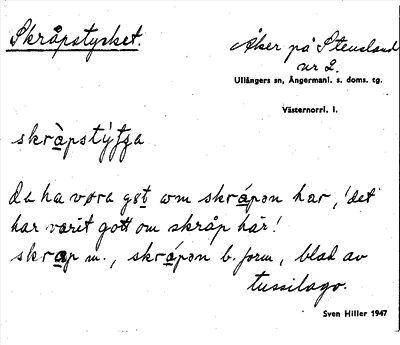 Skråpstycket.
Åker på Stensland
nr 2.
Ullångers sn, Ångermanl. s. doms. tg.
Västernorrl. l.
skràpstýʃʃa
da ha vɷra gɷt ɷm skrápən har, 'det
har varit gott om skråp här!
skrap m., skrápən b. form, blad av
tussilago.
Sven Hiller 1947